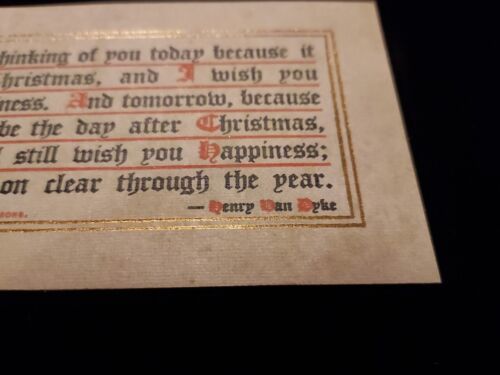 hinking of you today because it
hristmas, and I wish you
ness. And tomorrow, because
be the day after Christmas,
still wish you Happiness;
on clear through the year.
— Henry Van Dyke